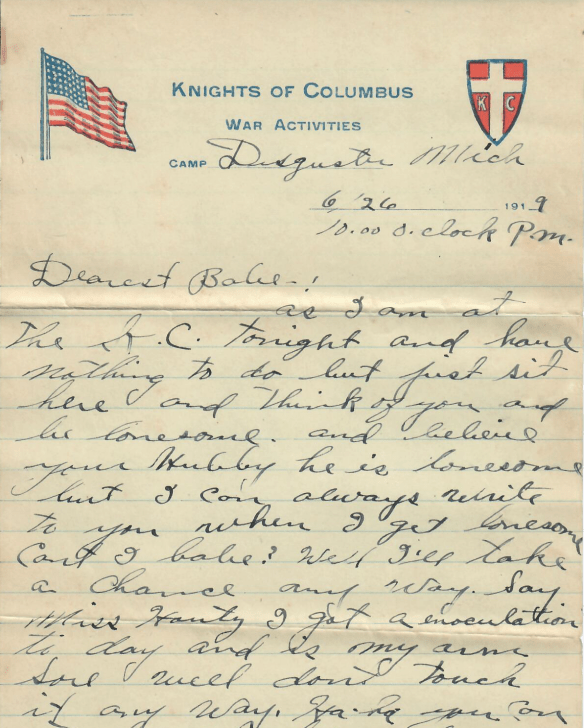 KNIGHTS OF COLUMBUS
WAR ACTIVITIES
K C
CAMP Disguster Mich
6/26 1919
10.00 O. clock P.m.
Dearest Babe-!
as I am at
The K. C. tonight and have
nothing to do but just sit
here and think of you and
be lonesome. and believe
your Hubby he is lonesome
but I can always write
to you when I get lonesome
cant I babe? Well I'll take
a chance any way. Say
Miss I got a enoculation
to day and is my arm
sore well dont touch
it any way. Ha-ha you can